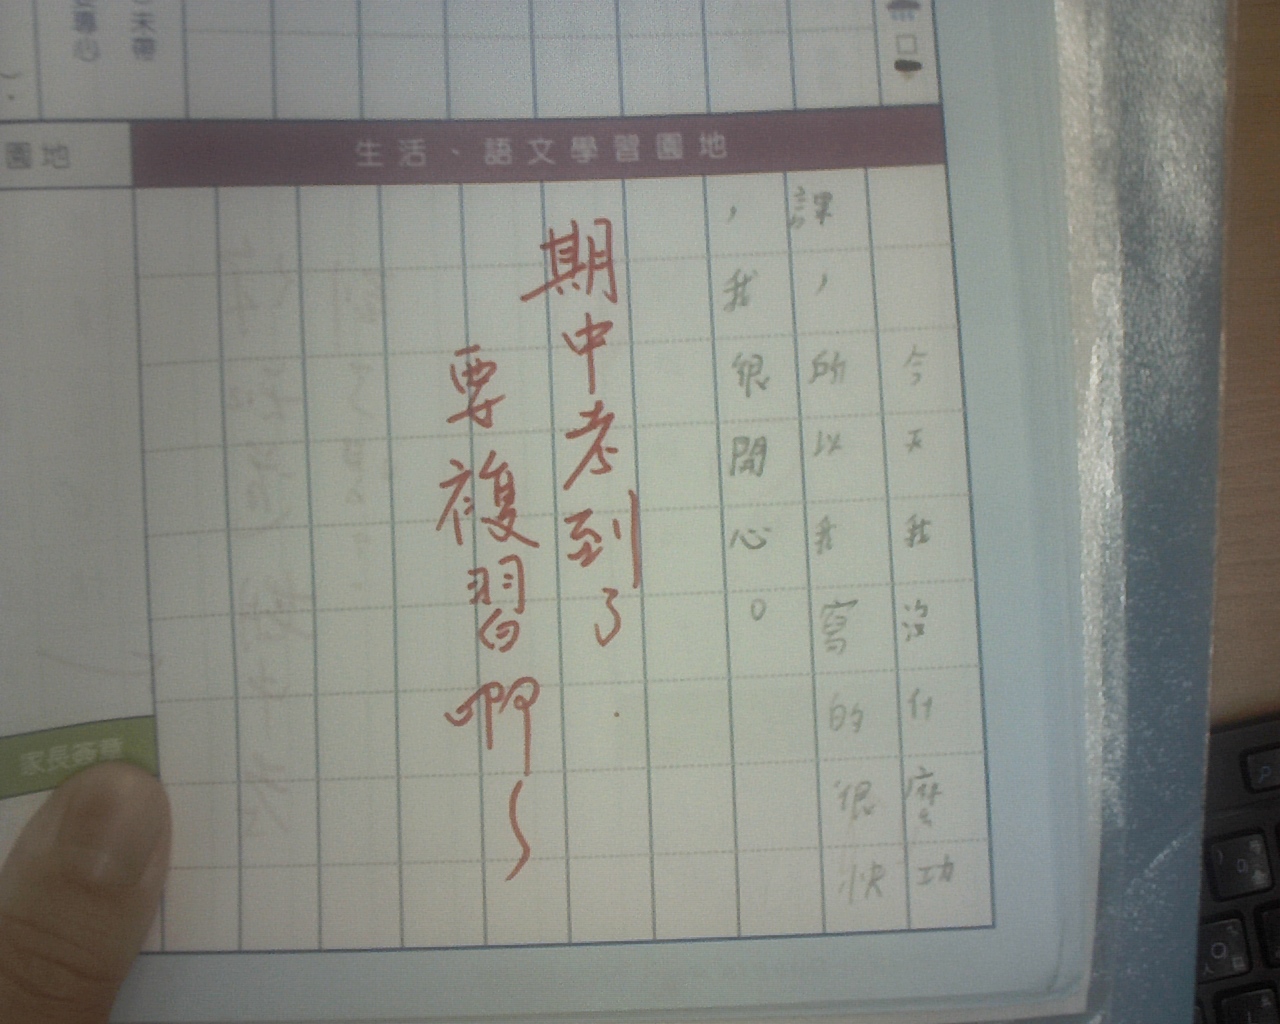 生活、語文學習園地
園地
今天我沒什麼功
課，所以我寫的很快
，我很開心。
期中考到了
要複習啊～
家長簽章